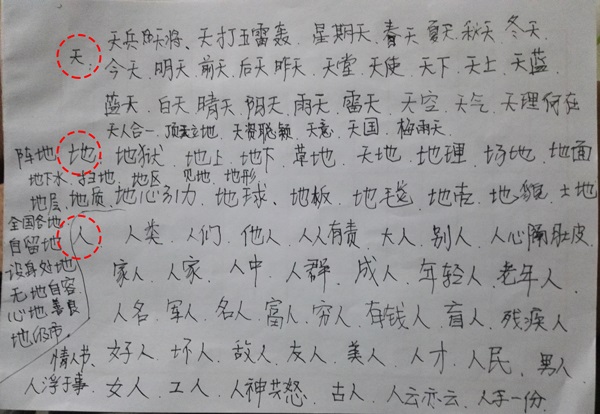 天兵天将、天打五雷轰、星期天、春天、夏天、秋天、冬天
天、今天、明天、前天、后天、昨天、天堂、天使、天下、天上、天蓝
蓝天、白天、晴天、阴天、雨天、雷天、天空、天气、天理何在
天人合一、顶天立地、天资聪颖、天意、天国、梅雨天、
阵地 地、地狱、地上、地下、草地、天地、地理、场地、地面
地下水、扫地、地区、见地、地形
地层、地质、地心引力、地球、地板、地毯、地壳、地貌、土地
全国各地
自留地
设身处地
无地自容
心地善良
地级市
人、人类、人们、他人、人人有责、大人、别人、人心隔肚皮
家人、人家、人中、人群、成人、年轻人、老年人、
人名、军人、名人、富人、穷人、有钱人、盲人、残疾人
情人节、好人、坏人、敌人、友人、美人、人才、人民、男人
人浮于事、女人、工人、人神共怒、古人、人云亦云、人手一份